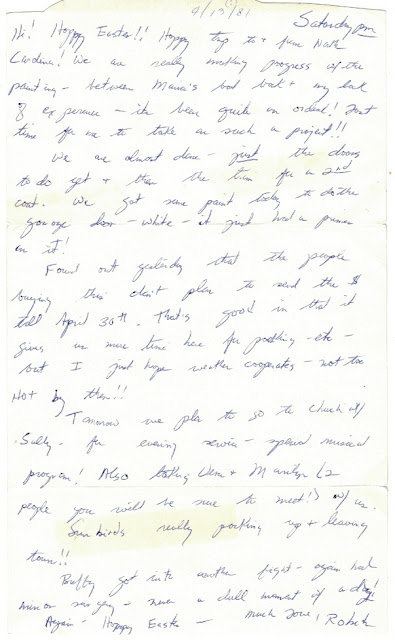 4/15/81
Saturday pm
Hi! Happy Easter!! Happy trip to + from North
Carolina! We are really making progress w/the
painting - between Mama's bad back + my lack
of experience - its been quite an ordeal! First
time for me to take on such a project!!
We are almost done - just the doors
to do yet + then the trim for a 2nd
coat. We got some paint today to do the
garage door - white - it just had a primer
on it!
Found out yesterday that the people
buying this don't plan to send the $
till April 30th. That's good in that it
gives us more time here for packing - etc -
but I just hope weather cooperates - not too
Hot by then!!
Tomorrow we plan to go to church w/
Sally - for evening service - special musical
program! Also taking + Marilyn (2
people you will be sure to meet!) w/ us.
Sun birds really packing up + leaving
town!!
Buffy got into another fight - again had
minor surgery - never a dull moment if a dog!
Again - Happy Easter - much love,